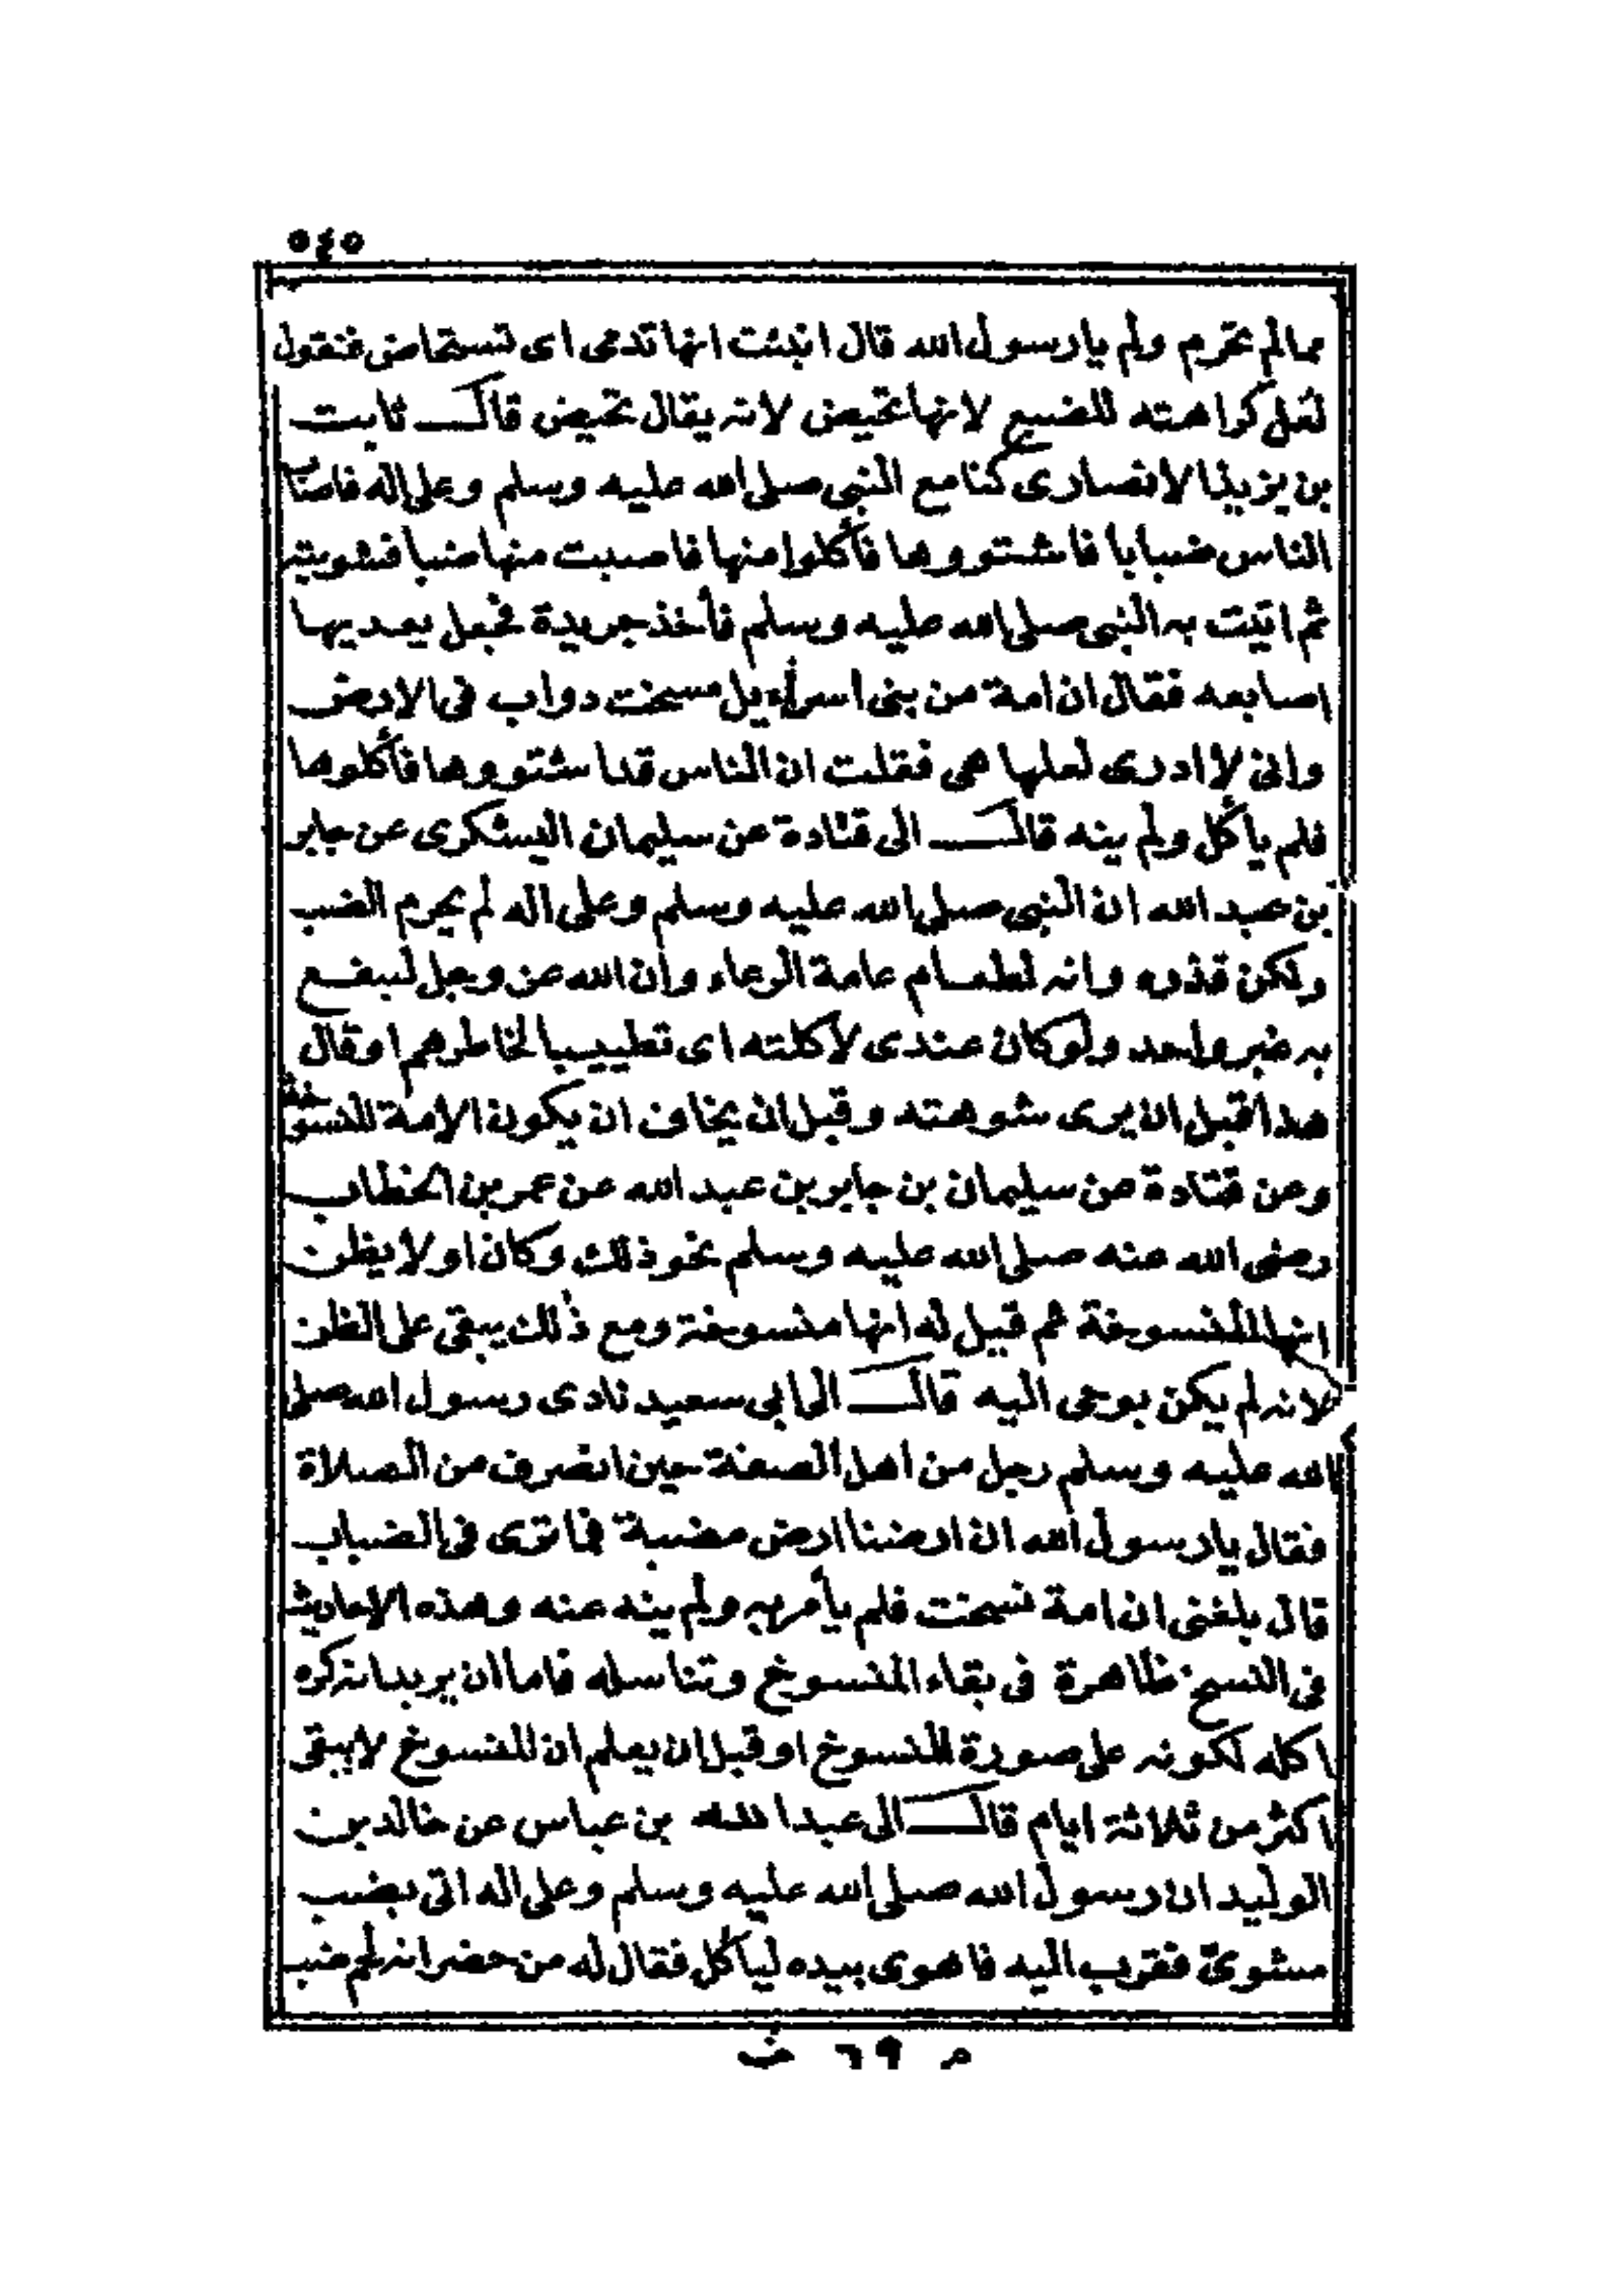 ٥٤٥
مما لم تحرم ولم يا رسول الله قال انبئت انها تدمى اى تستحاض فنقول
لعل كراهته للضبع لانها تحيض لانه يقال تحيض قال ثابت
بن يزيد الانصارى كنا مع النبى صلى الله عليه وسلم وعلى اله فاصاب
الناس ضبابا فاشتووها فأكلوا منها فاصبت منها ضبا فشويته
ثم اتيت به النبى صلى الله عليه وسلم فأخذ جريدة فجعل يعد بها
اصابعه فقال ان امة من بنى اسراءيل مسخت دواب فى الارض
وانى لا ادرى لعلها هى فقلت ان الناس قد اشتووها فأكلوها
فلم يأكل ولم ينه قال الى قتادة عن سليمان اليشكرى عن جابر
بن عبد الله ان النبى صلى الله عليه وسلم وعلى اله لم يحرم الضب
ولكن قذره وانه لطعام عامة الرعاء وان الله عز وجل لينفع
به غير واحد ولو كان عندى لاكلته اى تطييبا لخاطرهم او قال
هذا قبل ان يرى شوهته وقبل ان يخاف ان يكون الامة المنسوخة
وعن قتادة عن سليمان بن جابر بن عبد الله عن عمر بن الخطاب
رضى الله عنه صلى الله عليه وسلم نحو ذلك وكان اولا يظن
انها المنسوخة ثم قيل له انها منسوخة ومع ذلك يبقى على الظن
لانه لم يكن يوحى اليه قال الى ابى سعيد نادى رسول الله صلى
الله عليه وسلم رجل من اهل الصفة حين انصرف من الصلاة
فقال يا رسول الله ان ارضنا ارض مضبة فما ترى فى الضباب
قال بلغنى ان امة نسخت فلم يأمر به ولم ينه عنه وهذه الاحاديث
فى النسخ ظاهرة فى بقاء المنسوخ وتناسله فاما ان يريد انه كره
اكله لكونه على صورة المنسوخ او قبل ان يعلم ان المنسوخ لا يبقى
اكثر من ثلاثة ايام قال الى عبد الله بن عباس عن خالد بن
الوليد ان رسول الله صلى الله عليه وسلم وعلى اله اتى بضب
مشوىّ فقرب اليه فاهوى بيده ليأكل فقال له من حضر انه لحم ضب
م ٦٩ ف